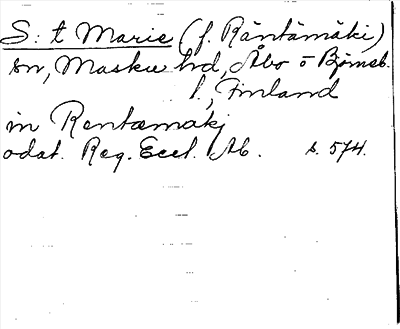 S:t Marie (f. Räntämäki)
sn, Masku hd, Åbo o Björneb.
l., Finland
in Rentæmakj
odat. Reg. Eccl. Ab. s. 574.